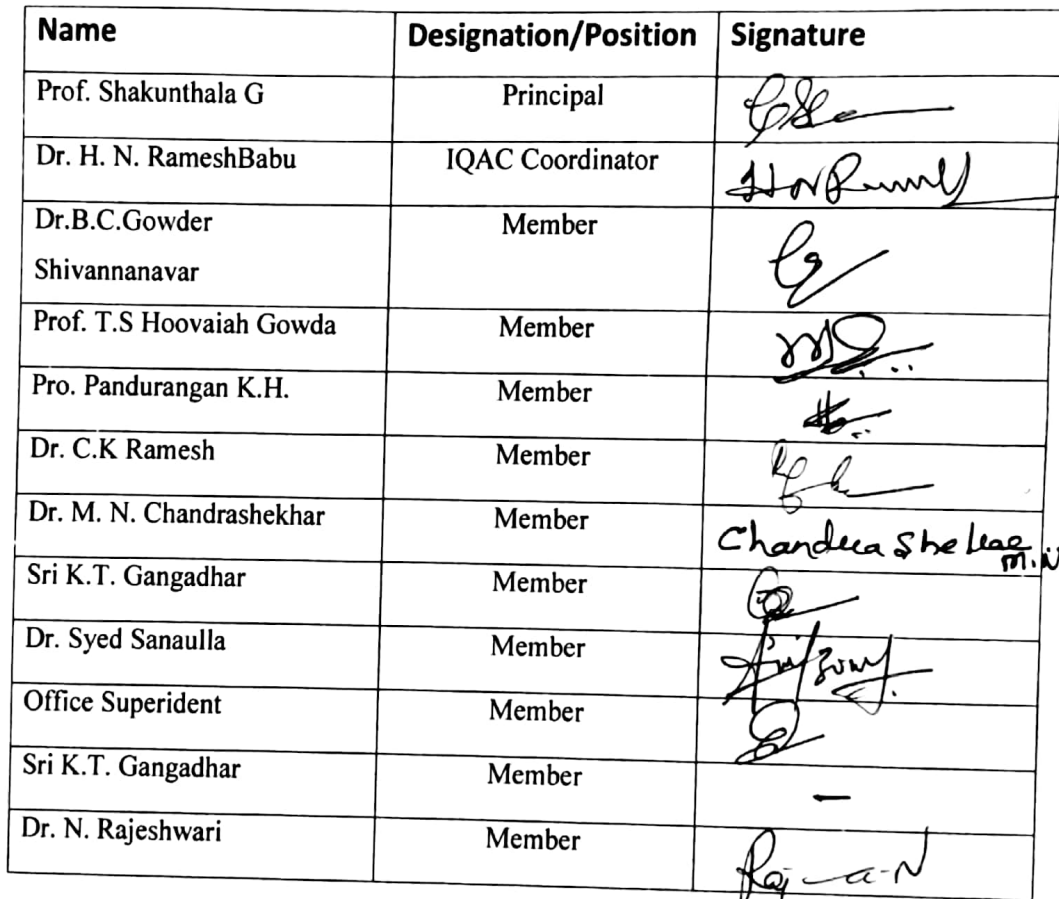 Name Designation/Position Signature
Prof. Shakunthala G Principal
Dr. H. N. RameshBabu IQAC Coordinator
Dr.B.C.Gowder Member
Shivannanavar
Prof. T.S Hoovaiah Gowda Member
Pro. Pandurangan K.H. Member
Dr. C.K Ramesh Member
Dr. M. N. Chandrashekhar Member
Sri K.T. Gangadhar Member
Dr. Syed Sanaulla Member
Office Superident Member
Sri K.T. Gangadhar Member –
Dr. N. Rajeshwari Member